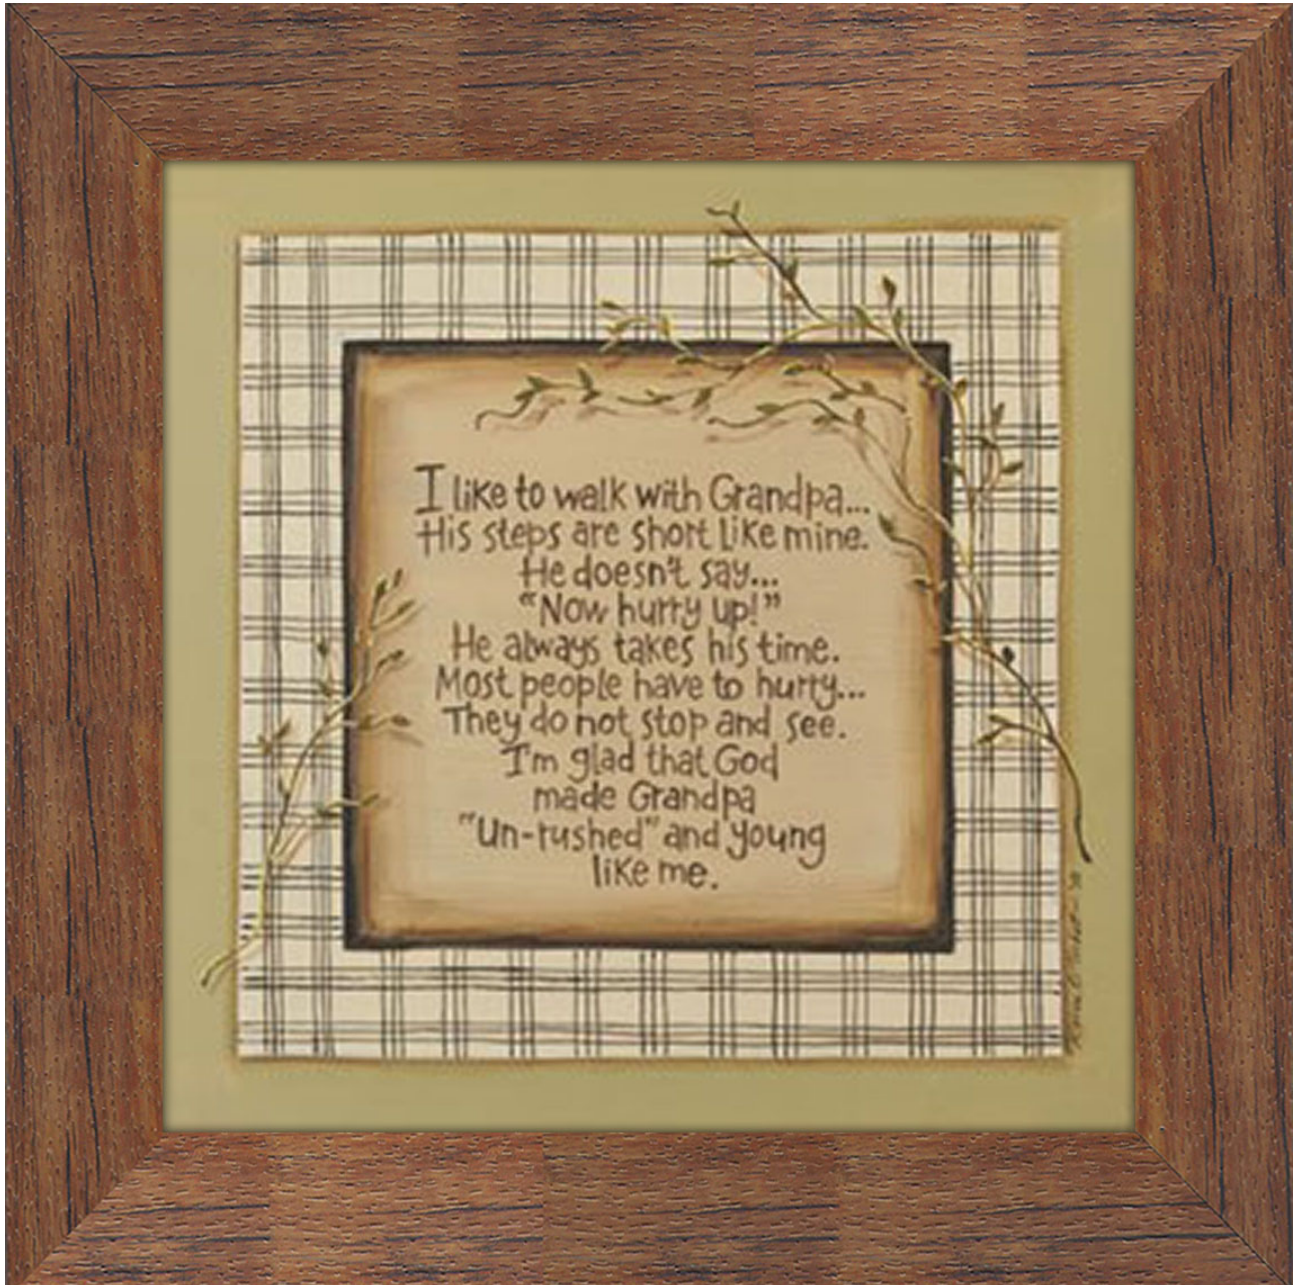 I like to walk with Grandpa...
His steps are short like mine.
He doesn't say...
"Now hurry up!"
He always takes his time.
Most people have to hurry...
They do not stop and see.
I'm glad that God
made Grandpa
"Un-rushed" and young
like me.